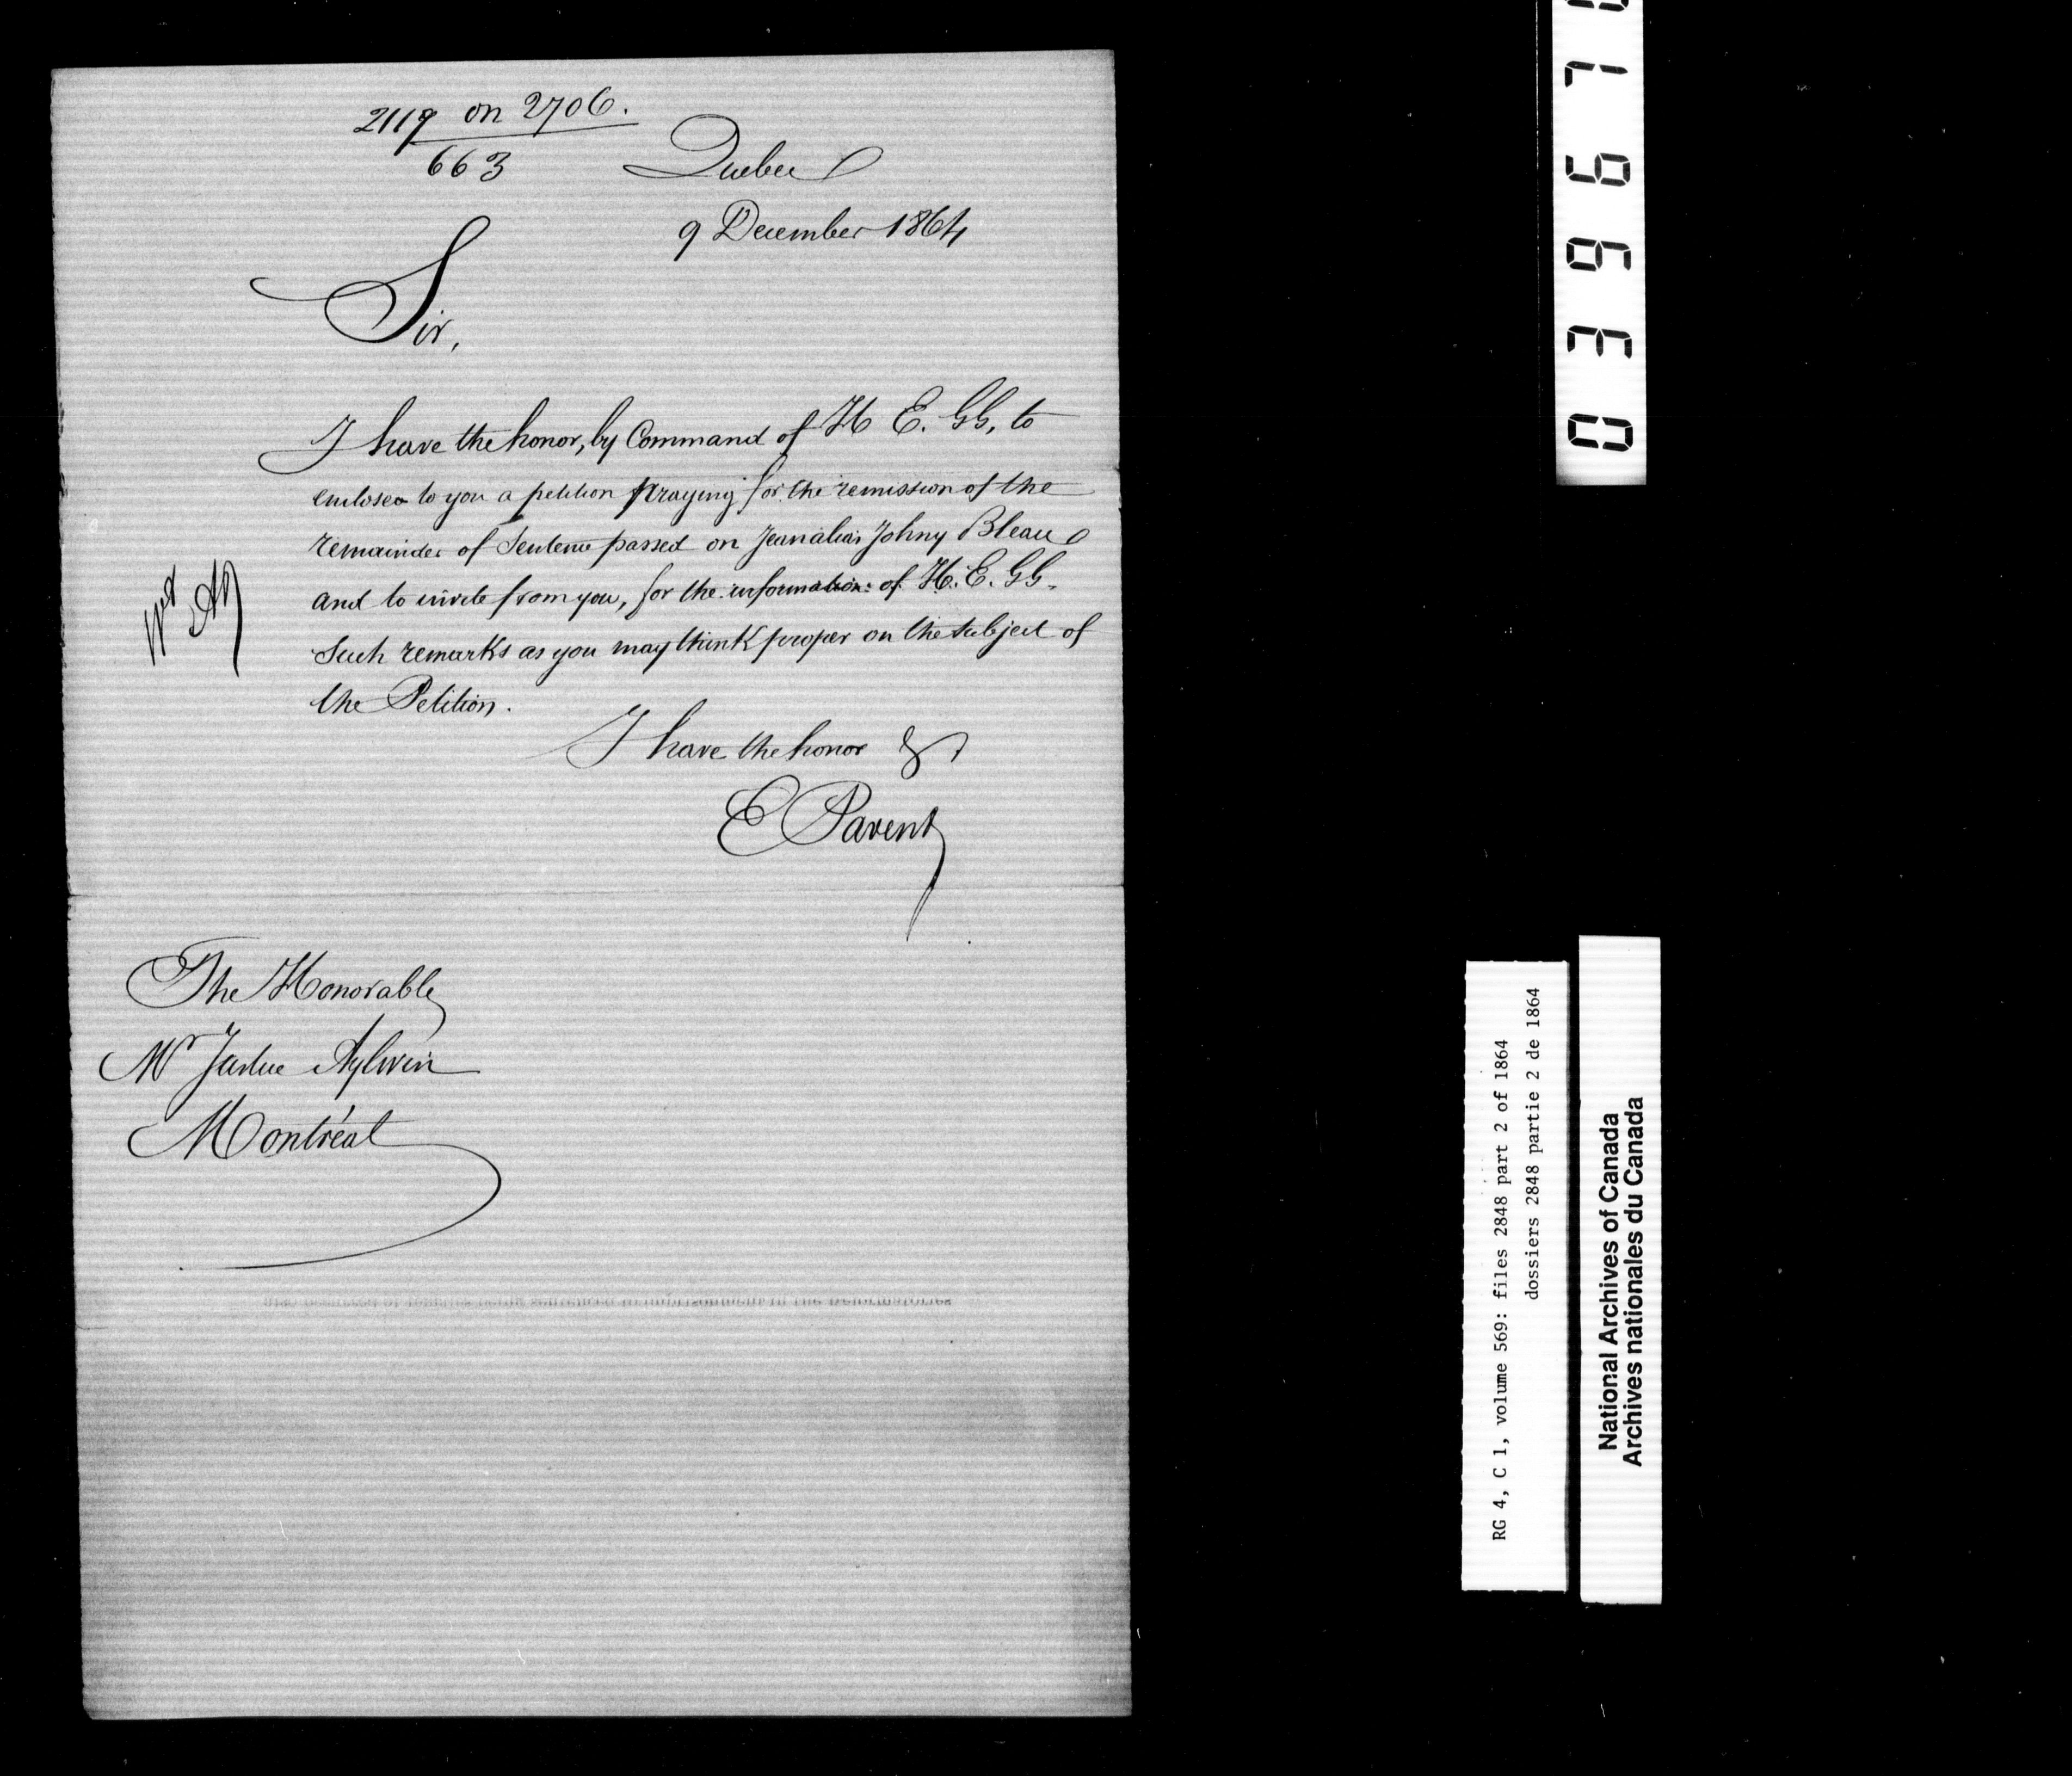 2119 on 2706.
663
Quebec
9 December 1864
Sir,
I have the honor, by Command of H E. GG, to
enclose to you a petition praying for the remission of the
remainder of Sentence passed on Jean alias Johny Bleau
and to invite from you, for the information of H. E. GG.
Such remarks as you may think proper on the subject of
the Petition.
I have the honor &
E Parent
The Honorable
Mr Justice Aylwin
Montréal
RG 4, C 1, volume 569: files 2848 part 2 of 1864
dossiers 2848 partie 2 de 1864
National Archives of Canada
Archives nationales du Canada